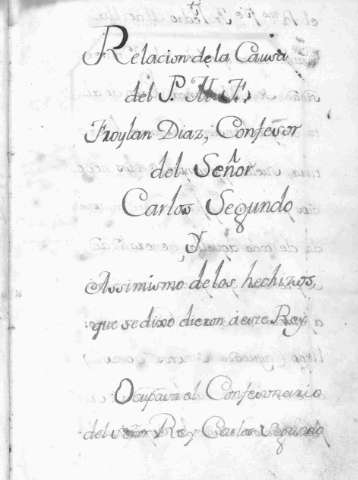 Relacion de la Causa
del P. M. F.
Froylan Diaz, Confesor
del Señor
Carlos Segundo
Y
Assimismo de los hechizos,
que se dixo dieron á este Rey.
el Confesonario
del señor Rey Carlos Segundo